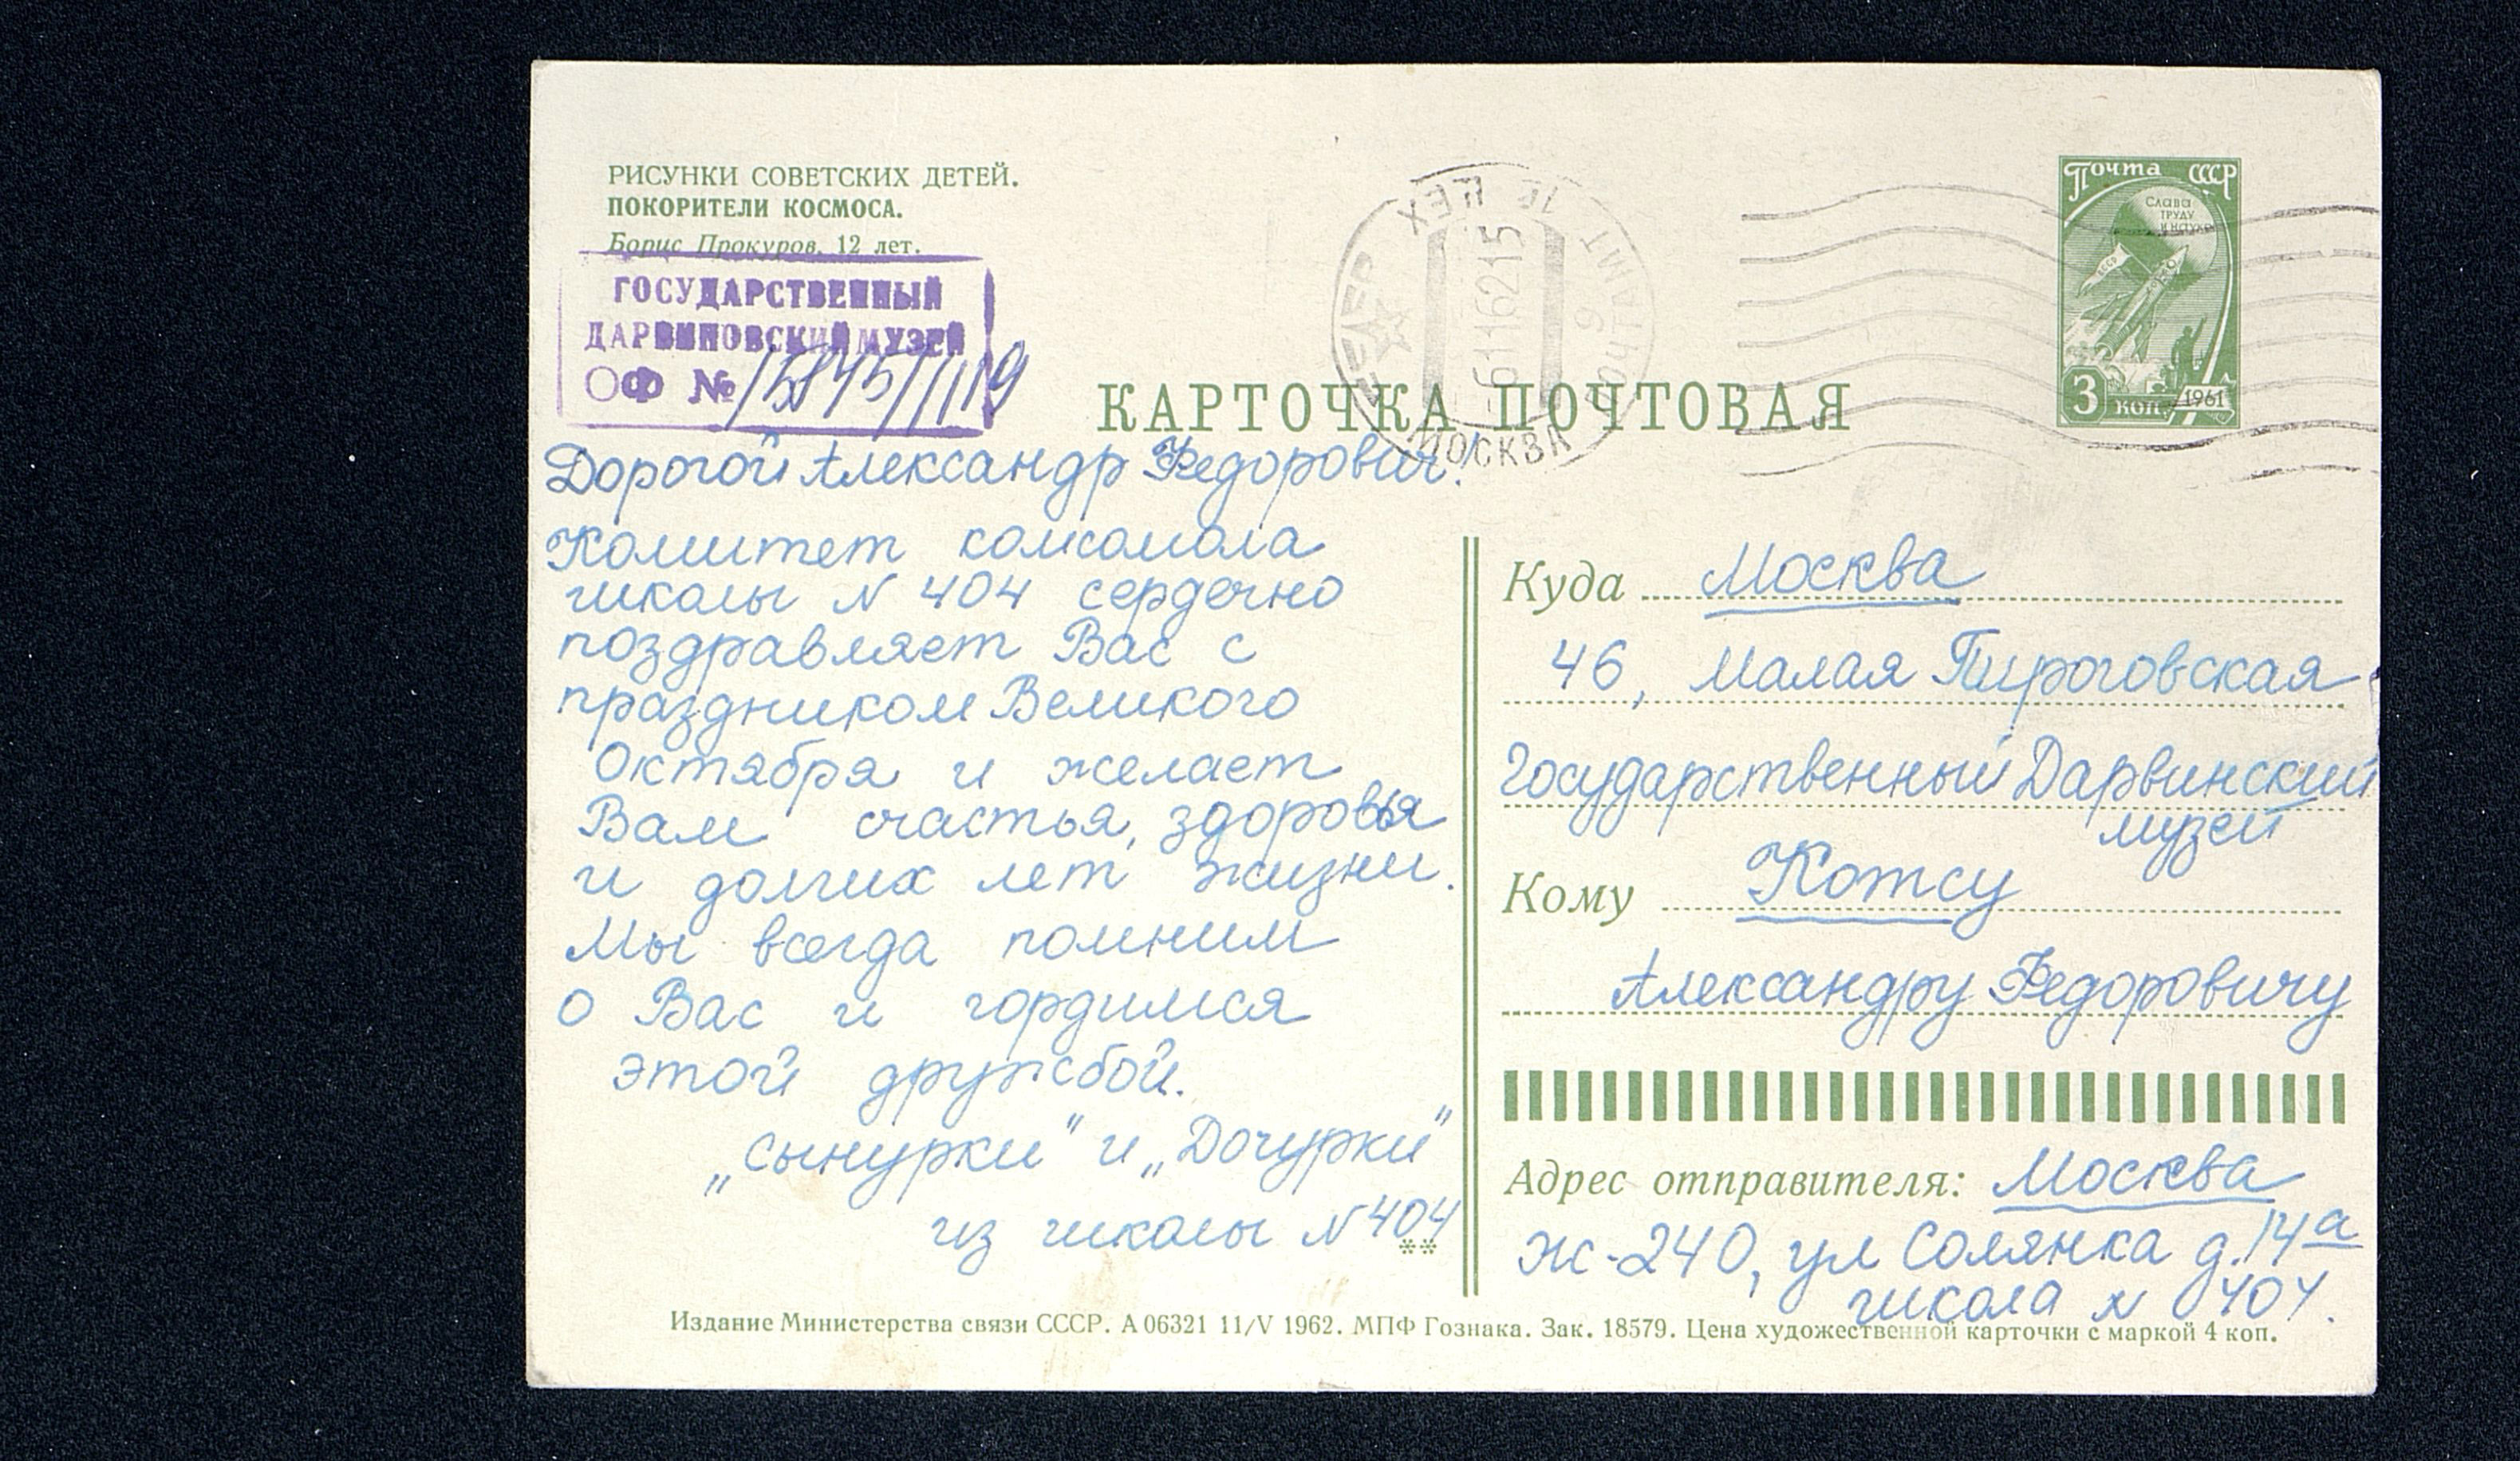 РИСУНКИ СОВЕТСКИХ ДЕТЕЙ.
ПОКОРИТЕЛИ КОСМОСА.
Борис Прокуров, 12 лет.
ГОСУДАРСТВЕННЫЙ
ДАРВИНОВСКИЙ МУЗЕЙ
ОФ №
Почта СССР
Слава
труду
и науке
СССР
3 коп
1961
МОСКВА
ПОЧТАМТ
6 11 62 15
КАРТОЧКА ПОЧТОВАЯ
Дорогой Александр Федорович!
Комитет комсомола
школы N 404 сердечно
поздравляет Вас с
праздником Великого
Октября и желает
Вам счастья, здоровья
и долгих лет жизни.
Мы всегда помним
о Вас и гордимся
этой дружбой.
„сынурки" и „Дочурки"
из школы N 404
Куда Москва
46, Малая Пироговская
Государственный Дарвинский
музей
Кому Котсу
Александру Федоровичу
Адрес отправителя: Москва
Ж-240, ул Солянка д. 14а
школа N 404.
Издание Министерства связи СССР. А 06321 11/V 1962. МПФ Гознака. Зак. 18579. Цена художественной карточки с маркой 4 коп.